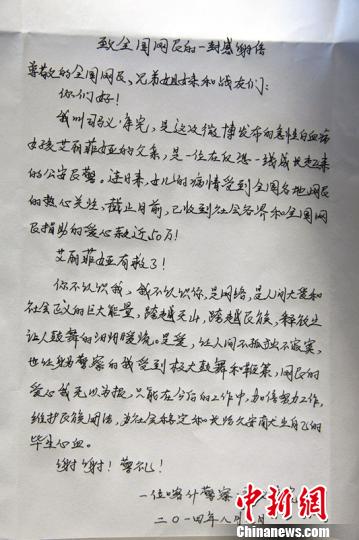 致全国网民的一封感谢信
尊敬的全国网民、兄弟姐妹和战友们:
你们好!
我叫司马义· 是这次微博发布的急性白血病
女孩艾丽菲娅的父亲,是一位在反恐一线成长起来
的公安民警。近日来,女儿的病情受到全国各地网民
的热心关注,截止目前,已收到社会各界和全国网
民捐助的爱心款近50万!
艾丽菲娅有救了!
你不认识我,我不认识你,是网络,是人间大爱和
社会正义的巨大能量,跨越天山,跨越民族,释放出
让人鼓舞的 暖流。是爱,让人间不孤独不寂寞,
也让身为警察的我受到极大鼓舞和鞭策,网民的
爱心我无以为报,只能在今后的工作中,加倍努力工作,
维护民族团结,为社会稳定和长治久安献出自己的
毕生心血。
谢谢!警礼!
一位喀什警察
二〇一四年八月 日
中新网